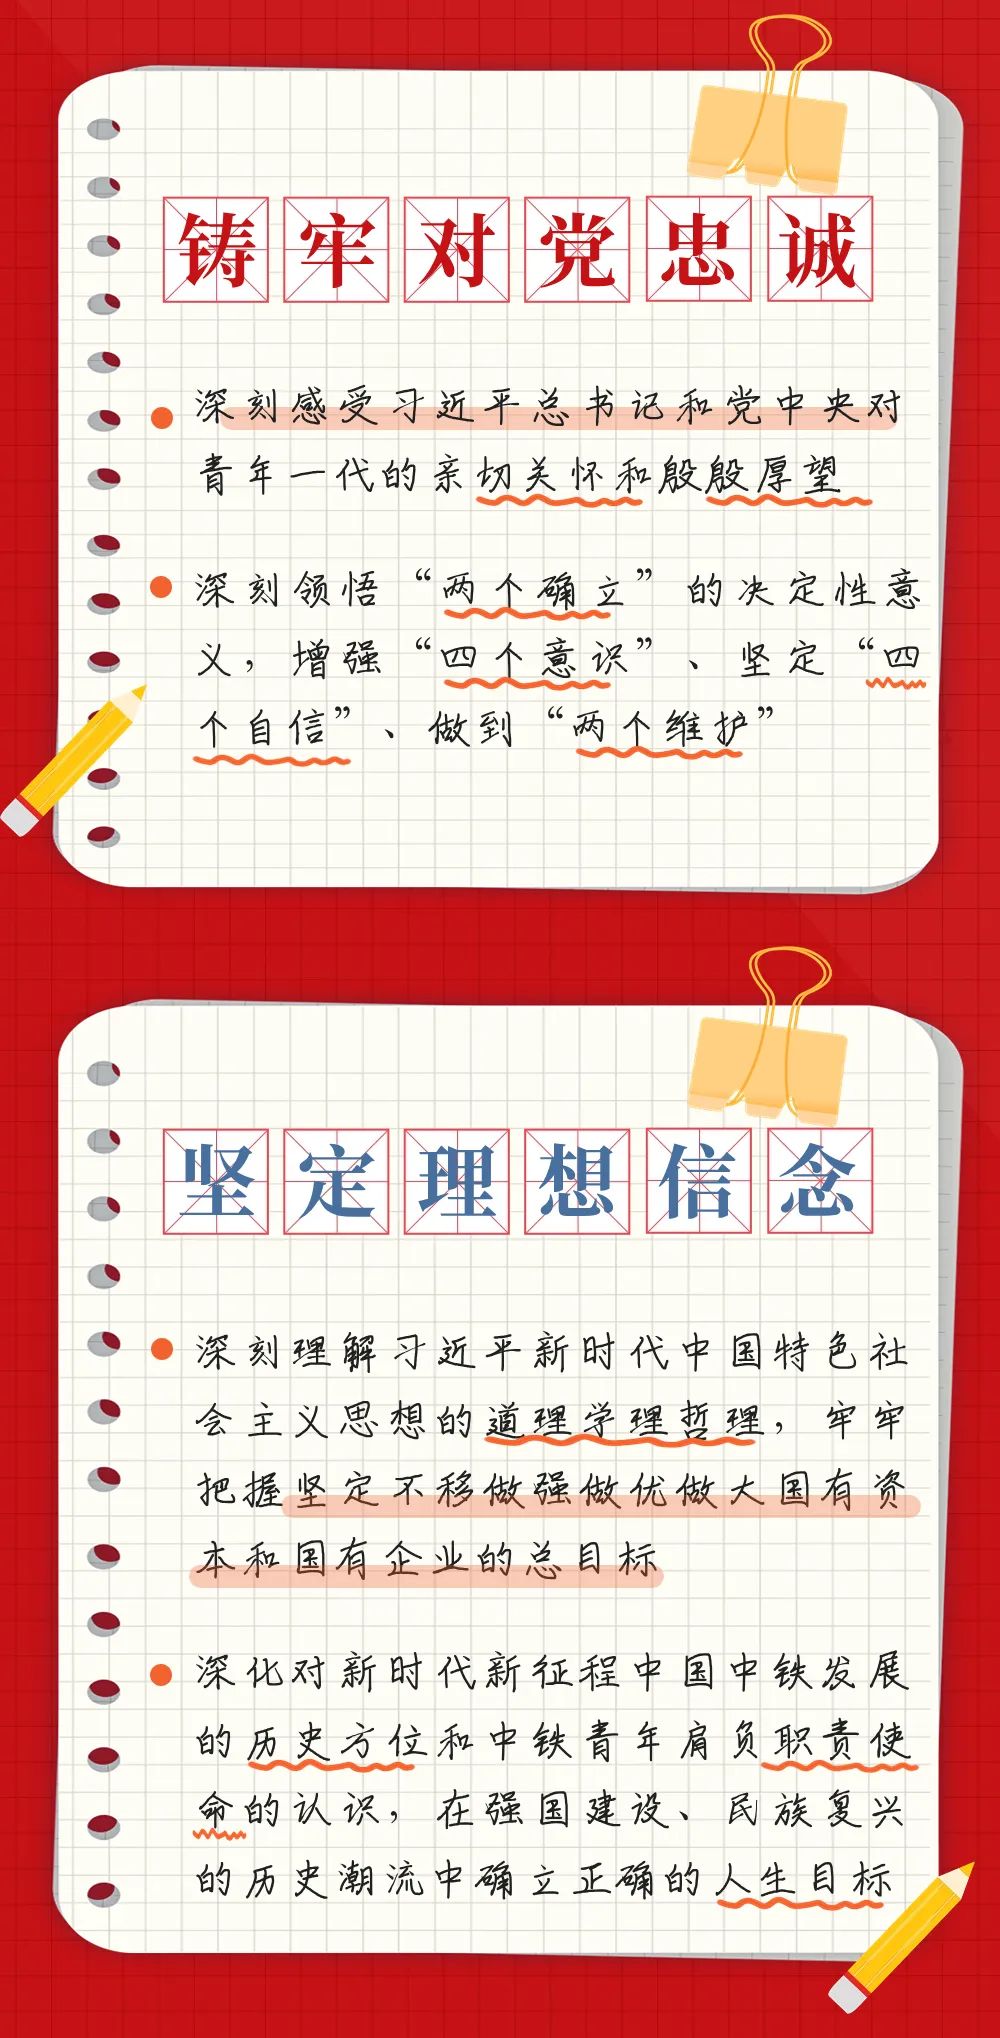 铸牢对党忠诚
深刻感受习近平总书记和党中央对
青年一代的亲切关怀和殷殷厚望
深刻领悟“两个确立”的决定性意
义，增强“四个意识”、坚定“四
个自信”、做到“两个维护”
坚定理想信念
深刻理解习近平新时代中国特色社
会主义思想的道理学理哲理，牢牢
把握坚定不移做强做优做大国有资
本和国有企业的总目标
深化对新时代新征程中国中铁发展
的历史方位和中铁青年肩负职责使
命的认识，在强国建设、民族复兴
的历史潮流中确立正确的人生目标